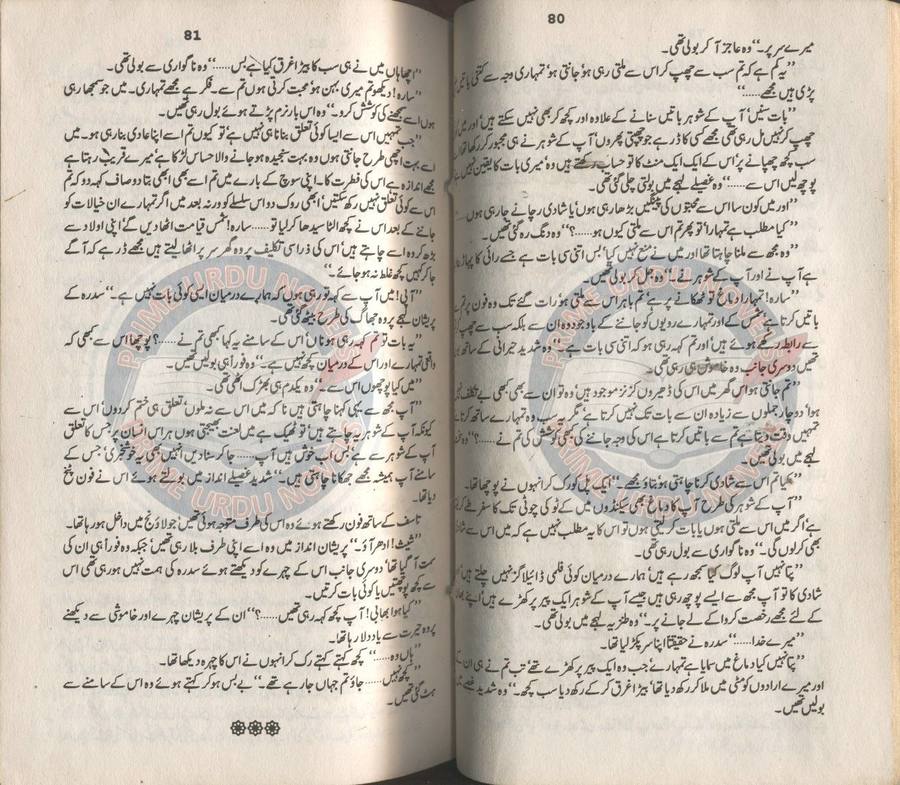 80
میرے سر پر۔“ وہ عاجز آ کر بولی تھی۔
”یہ کم ہے کہ تم سب سے چھپ کر اس سے ملتی رہی ہو، جانتی ہو، تمہاری وجہ سے کتنی باتیں
پڑی ہیں مجھے......“
”بات سنیں‘ آپ کے شوہر باتیں سنانے کے علاوہ اور کچھ کر بھی نہیں سکتے ہیں‘ اور میں
چھپ کر نہیں مل رہی تھی‘ مجھے کسی کا ڈر ہے جو چھپتی پھروں‘ آپ کے شوہر نے ہی مجبور کر رکھا تھا
سب کچھ چھپانے پر‘ اس کے ایک ایک منٹ کا تو حساب رکھتے ہیں وہ‘ میری بات کا یقین نہیں
پوچھ لیں اس سے......“ وہ غصیلے لہجے میں بولتی چلی گئی تھی۔
”اور میں کون سا اس سے محبتوں کی پینگیں بڑھا رہی ہوں‘ یا شادی رچانے جا رہی ہوں......“
”کیا مطلب ہے تمہارا‘ تو پھر تم اس سے ملتی کیوں ہو......؟“ وہ دنگ رہ گئی تھیں۔
”وہ مجھ سے ملنا چاہتا تھا اور میں نے منع نہیں کیا‘ بس اتنی سی بات ہے جسے رائی کا پہاڑ
ہے آپ نے اور آپ کے شوہر نے۔“ وہ جل کر بولی تھی۔
”سارہ! تمہارا دماغ تو ٹھکانے پر ہے‘ تم باہر اس سے ملتی ہو‘ رات گئے تک وہ فون پر تم سے
باتیں کرتا ہے‘ شمس کے اور تمہارے رویوں کو جاننے کے باوجود وہ ان سے بلکہ سب سے چھپ
سے رابطہ رکھے ہوئے ہیں‘ اور تم کہہ رہی ہو کہ اتنی سی بات ہے۔“ وہ شدید حیرانی کے ساتھ
تھیں دوسری جانب وہ خاموش ہی رہی تھی۔
”تم جانتی ہو اس گھر میں اس کی ڈھیروں کزنز موجود ہیں‘ وہ تو ان سے بھی کبھی بے تکلف نہیں
ہوا‘ دو چار جملوں سے زیادہ ان سے بات تک نہیں کرتا ہے‘ مگر یہ سب وہ تمہارے ساتھ کرتا
تمہیں وقت دیتا ہے تم سے باتیں کرتا ہے اس کی وجہ جاننے کی بھی کوشش کی تم نے......؟“ وہ
لہجے میں بولی تھیں۔
”کیا تم اس سے شادی کرنا چاہتی ہو‘ بتاؤ مجھے۔“ ایک پل کو رک کر انہوں نے پوچھا تھا۔
”آپ کے شوہر کی طرح آپ کا دماغ بھی سیکنڈوں میں کے ٹو کی چوٹی تک کا سفر طے کر
ہے‘ اگر میں اس سے ملتی ہوں یا بات کر لیتی ہوں تو اس کا یہ مطلب نہیں ہے کہ میں اس سے
بھی کر لوں گی۔“ وہ ناگواری سے بول رہی تھی۔
”پتا نہیں آپ لوگ کیا سمجھ رہے ہیں‘ ہمارے درمیان کوئی فلمی ڈائیلاگز نہیں چلتے ہیں
شادی کا تو آپ مجھ سے ایسے پوچھ رہی ہیں جیسے آپ کے شوہر ایک پیر پر کھڑے ہیں‘ اپنے
کے لئے مجھے رخصت کروا کے لے جانے پر۔“ وہ طنزیہ لہجے میں بولی تھی۔
”میرے خدا......“ سدرہ نے حقیقتاً اپنا سر پکڑ لیا تھا۔
”پتا نہیں کیا دماغ میں سمایا ہے تمہارے‘ جب وہ ایک پیر پر کھڑے تھے‘ تب تم نے ہی ان کے
اور میرے ارادوں کو مٹی میں ملا کر رکھ دیا تھا‘ بیڑا غرق کر کے رکھ دیا سب کچھ۔“ وہ شدید غصے میں
بولیں تھیں۔
81
”اچھا ہاں میں نے ہی سب کا بیڑا غرق کیا ہے بس......“ وہ ناگواری سے بولی تھی۔
”سارہ! دیکھو تم میری بہن ہو‘ محبت کرتی ہوں تم سے۔ فکر ہے مجھے تمہاری۔ میں جو سمجھا رہی
ہوں اسے سمجھنے کی کوشش کرو۔“ وہ اس بار نرم پڑتے ہوئے بول رہی تھیں۔
”جب تمہیں اس سے ایسا کوئی تعلق بنانا ہی نہیں ہے‘ تو کیوں تم اسے اپنا عادی بنا رہی ہو۔ میں
اسے بہت اچھی طرح جانتی ہوں وہ بہت سنجیدہ ہو جانے والا حساس لڑکا ہے‘ میرے قریب رہتا ہے
مجھے اندازہ ہے اس کی فطرت کا۔ اپنی سوچ کے بارے میں تم اسے بھی ابھی بتا دو صاف کہہ دو کہ تم
اس سے کوئی تعلق نہیں رکھ سکتیں‘ ابھی روک دو اس سلسلے کو ورنہ بعد میں اگر تمہارے ان خیالات کو
جاننے کے بعد اس نے کچھ الٹا سیدھا کر لیا تو...... سارہ! شمس قیامت اٹھا دیں گے‘ اپنی اولاد سے
بڑھ کر وہ اسے چاہتے ہیں‘ اس کی ذرا سی تکلیف پر وہ گھر سر پر اٹھا لیتے ہیں مجھے ڈر ہے کہ آگے
جا کر کہیں کچھ غلط نہ ہو جائے۔“
”آپی! میں آپ سے کہہ تو رہی ہوں کہ ہمارے درمیان ایسی کوئی بات نہیں ہے۔“ سدرہ کے
پریشان لہجے پر وہ جھاگ کی طرح بیٹھ گئی تھی۔
”یہ بات تو تم کہہ رہی ہو ناں اس کے سامنے یہ کہا بھی تم نے......؟ پوچھا اس سے کبھی کہ
واقعی تمہارے اور اس کے درمیان کچھ نہیں ہے۔“ وہ فوراً ہی بولیں تھیں۔
”میں کیا پوچھوں اس سے۔“ وہ یکدم ہی بھڑک اٹھی تھی۔
”آپ مجھ سے یہی کہنا چاہتی ہیں نا کہ میں اس سے نہ ملوں‘ تعلق ہی ختم کر دوں‘ اس سے
کیونکہ آپ کے شوہر یہ چاہتے ہیں‘ تو ٹھیک ہے میں لعنت بھیجتی ہوں ہر اس انسان پر جس کا تعلق
آپ کے شوہر سے ہے‘ بس اب خوش ہیں آپ...... جا کر سنا دیں انہیں بھی یہ خوشخبری‘ جس کے
سامنے آپ ہمیشہ مجھے جھکانا چاہتی ہیں۔“ شدید غصیلے انداز میں بولتے ہوئے اس نے فون پٹخ
دیا تھا۔
تاسف کے ساتھ فون رکھتے ہوئے وہ اس کی طرف متوجہ ہوئی تھیں‘ جو لاؤنج میں داخل ہو رہا تھا۔
”شیث! ادھر آؤ۔“ پریشان انداز میں وہ اسے اپنی طرف بلا رہی تھیں‘ جبکہ وہ فوراً ہی ان کی
سمت آ گیا تھا‘ دوسری جانب اس کے چہرے کو دیکھتے ہوئے سدرہ کی ہمت نہیں ہو رہی تھی اس
سے کچھ پوچھتیں یا کوئی بات کرتیں۔
”کیا ہوا بھابی! آپ کچھ کہہ رہی تھیں......؟“ ان کے پریشان چہرے اور خاموشی سے دیکھنے
پر وہ حیرت سے یاد دلا رہا تھا۔
”ہاں وہ......“ کچھ کہتے کہتے رک کر انہوں نے اس کا چہرہ دیکھا تھا۔
”کچھ نہیں...... جاؤ تم جہاں جا رہے تھے۔“ بے بس ہو کر کہتے ہوئے وہ اس کے سامنے سے
ہٹ گئی تھیں۔
PRIME URDU NOVELS
PRIME URDU NOVELS